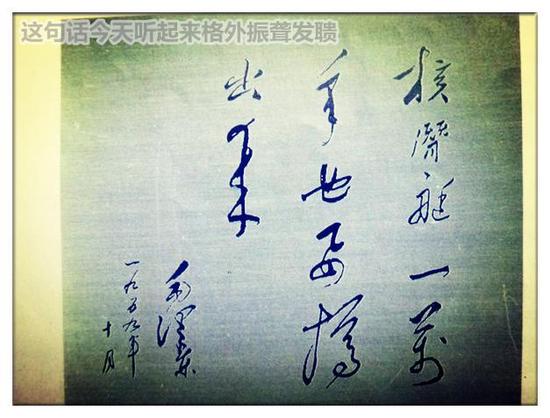 这句话今天听起来格外振聋发聩
核潜艇一万
年也要搞
出来
毛泽东
一九五九年
十月